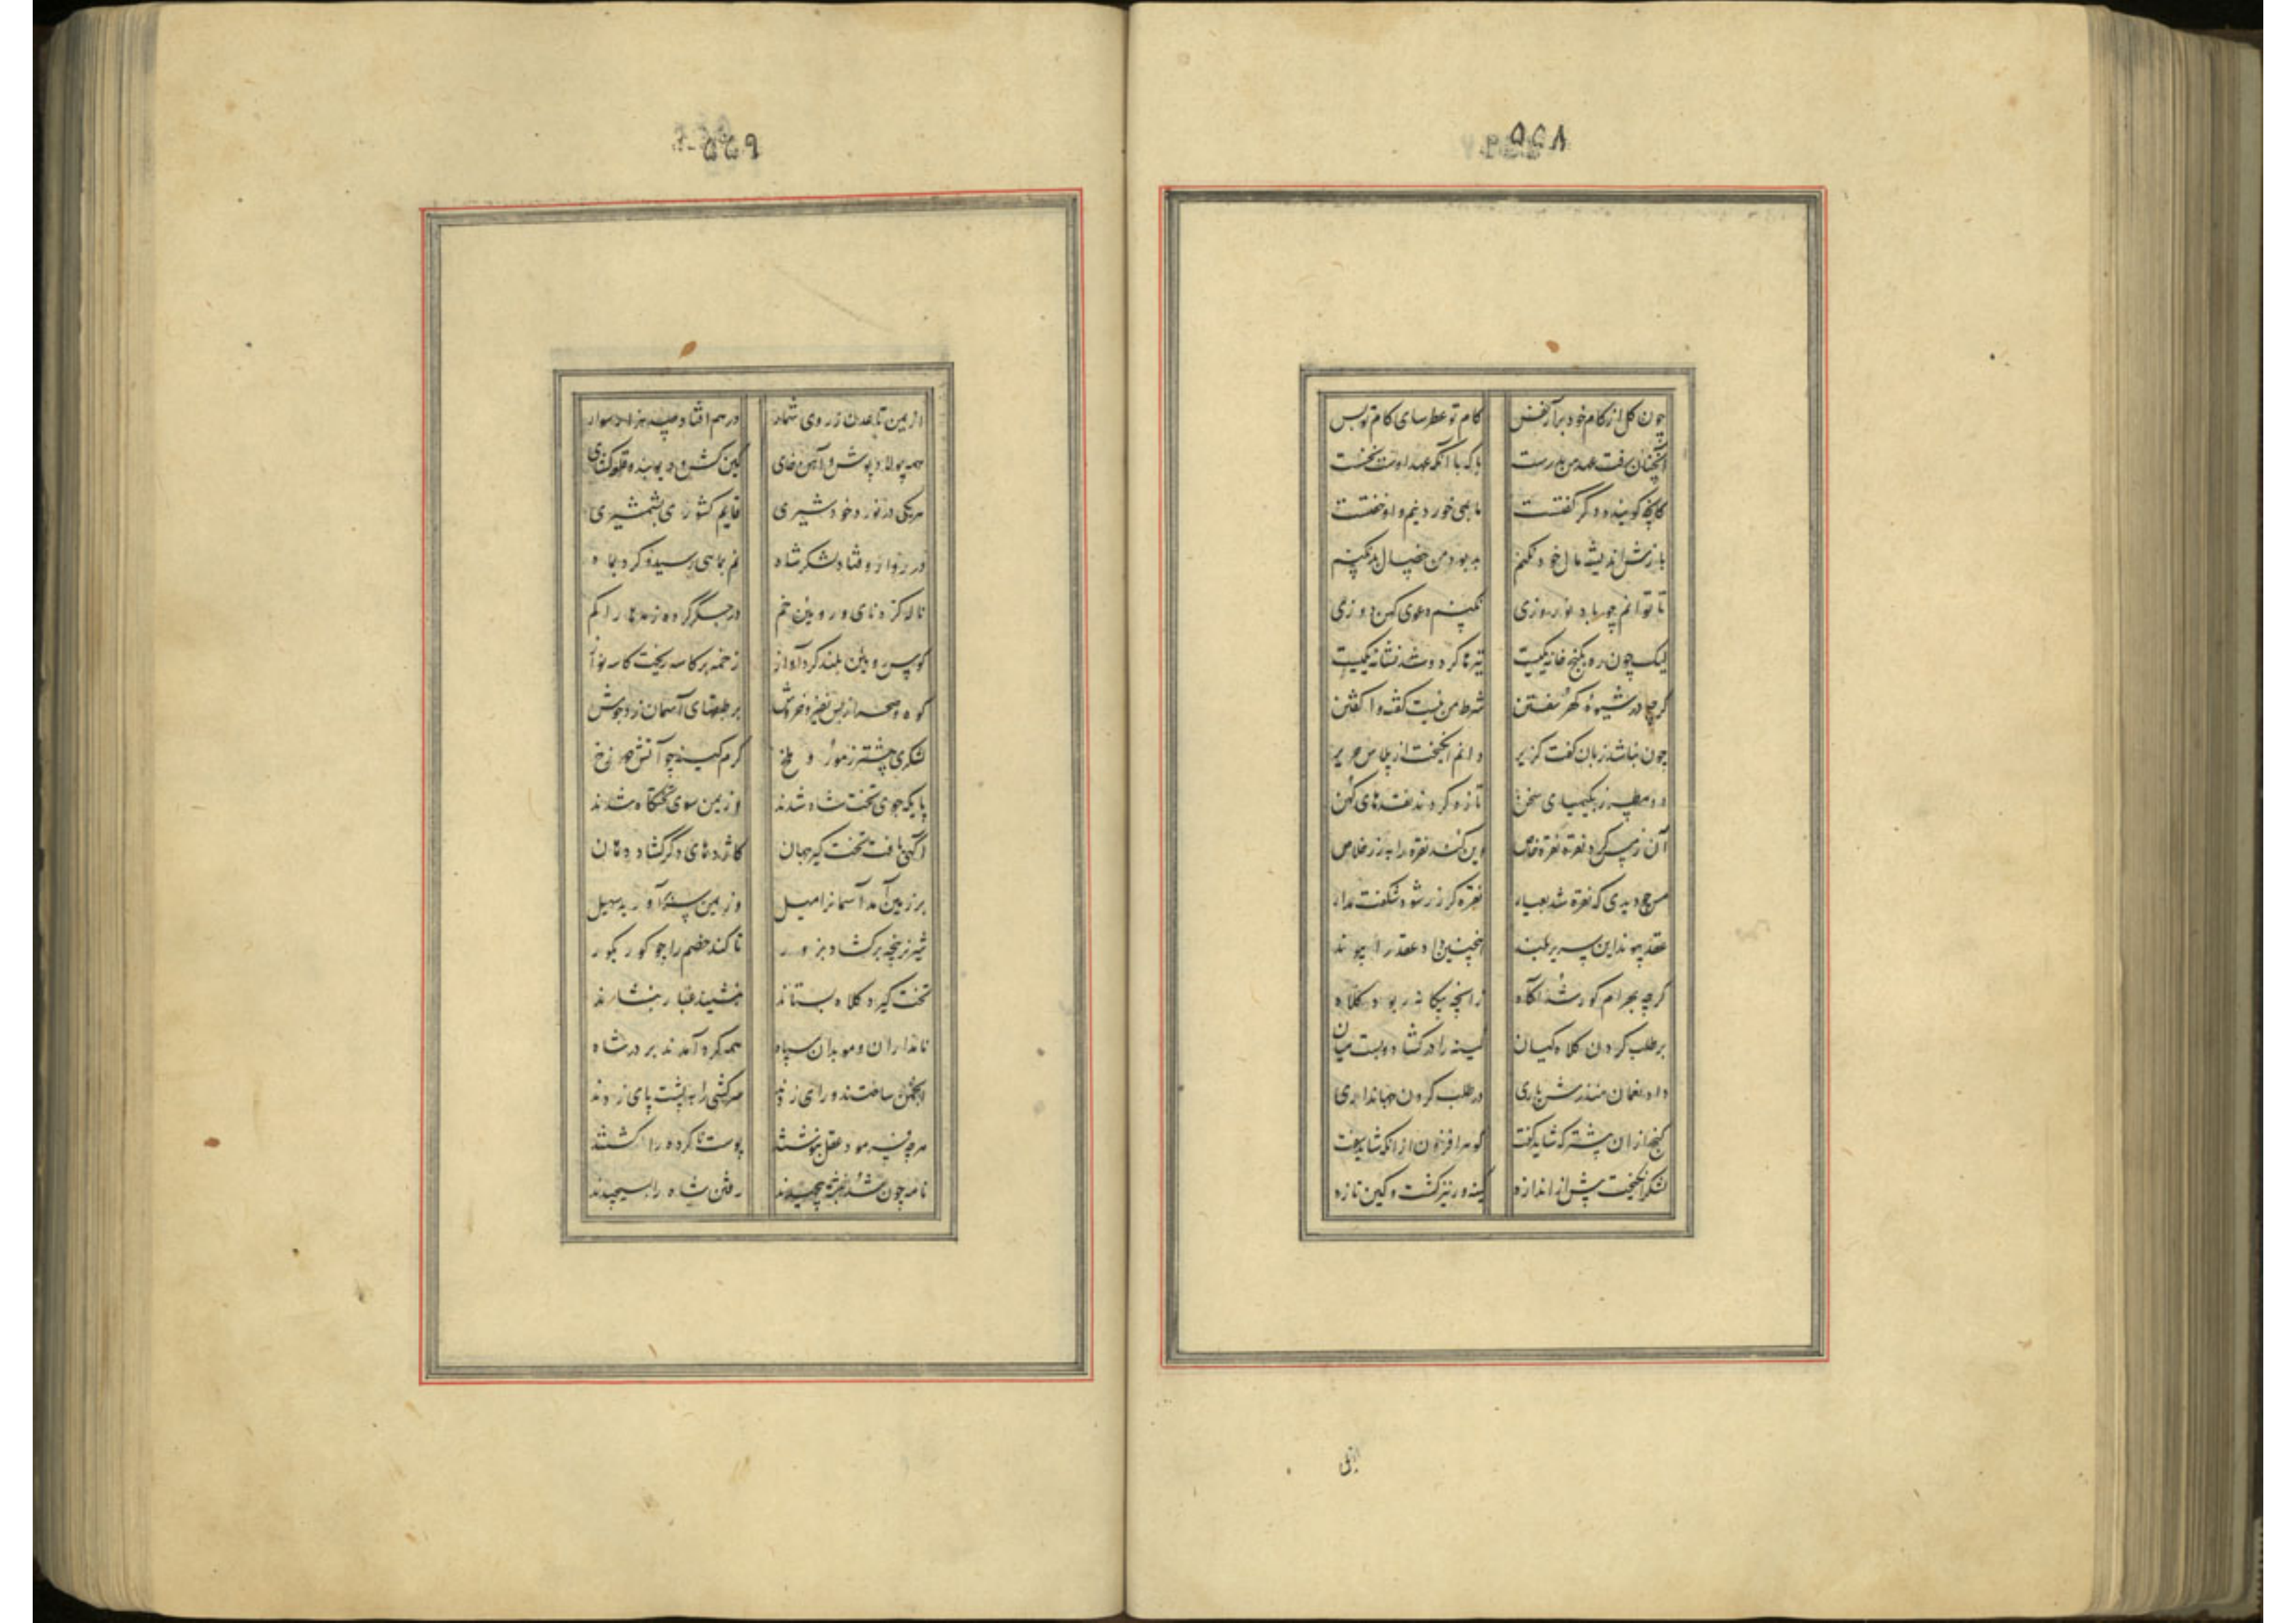 ۵۵۸
چون گل از کام خود برآر نفس کام تو عطرسای کام تو بس
آنچنان رفت عهد من ز نخست با که با آنکه عهد اوست نخست
کانچه گوینده دگر گفتست ما بمی خوردنیم و او خفتست
بازش اندیشه مال خود نکنم بد بود من خیال بد نکنم
تا توانم چو باد نوروزی نکنم دعوی کهن دوزی
لیک چون ره بگنج خانه یکیست تیرها گر دو شد نشانه یکیست
گرچه در شیوهٔ گهر سفتن شرط من نیست گفته وا گفتن
چون نباشد ز بان گفت گزیر دانم انگیخت از پلاس حریر
دو مطرز بکیمیای سخن تازه کردند نقدهای کهن
آن ز مس کرد نقره نقره خاص وین کند نقره را بزر خلاص
مس چو دیدی که نقره شد بعیار نقره گر زر شود شگفت مدار
عقد پیوند این سریر بلند اینچنین داد عقد را پیوند
گرچه بهرام گور شد آگاه زانچه بیگانه ربود کلاه
بر طلب کردن کلاه کیان کینه را در گشاد و بست میان
داد نعمان منذرش یاری در طلب کردن جهانداری
گنج از آن بیشتر که شاید گفت گوهر افزون از آنکه شاید سفت
لشکر انگیخت پیش از اندازه کینه ور تیز گشت و کین تازه
۵۵۹
از یمن تا عدن ز روی شمار در هم افتاد صد هزار سوار
همه پولاد پوش و آهن خای کین کش و دیو بند و قلعه گشای
هر یکی در نورد خود شیری قایم کشوری بشمشیری
در روارو فتاد لشکر شاه نم بماهی رسید و گرد بماه
ناله کره نای و رویین خم در جگر کرده زهرها را گم
کوس رویین بلند کرد آواز زخمه بر کاسه ریخت کاسه نواز
کوه و صحرا ز بس نفیر و خروش بر طبقهای آسمان زد جوش
لشکری بیشتر ز مور و ملخ گرم کینه چو آتش دوزخ
پایگه جوی تخت شاه شدند وز یمن سوی تختگاه شدند
آگهی یافت تخت گیر جهان کاژدهای دگر گشاد دهان
بر زمین آمد آسمانرا میل وز یمن سر برآورید سهیل
شیر نر پنجه برگشاد بزور تا کند خصم را چو گور بگور
تخت گیرد کلاه بستاند بنشیند غبار بنشاند
نامداران و موبدان سپاه همه گرد آمدند بر در شاه
انجمن ساختند و رای زدند سرکشی را بپشت پای زدند
هر چه فرمود عقل بنوشتند پوست ناکرده را کشتند
نامه چون شد نبشته پیچیدند رفتن شاه را بسیچیدند